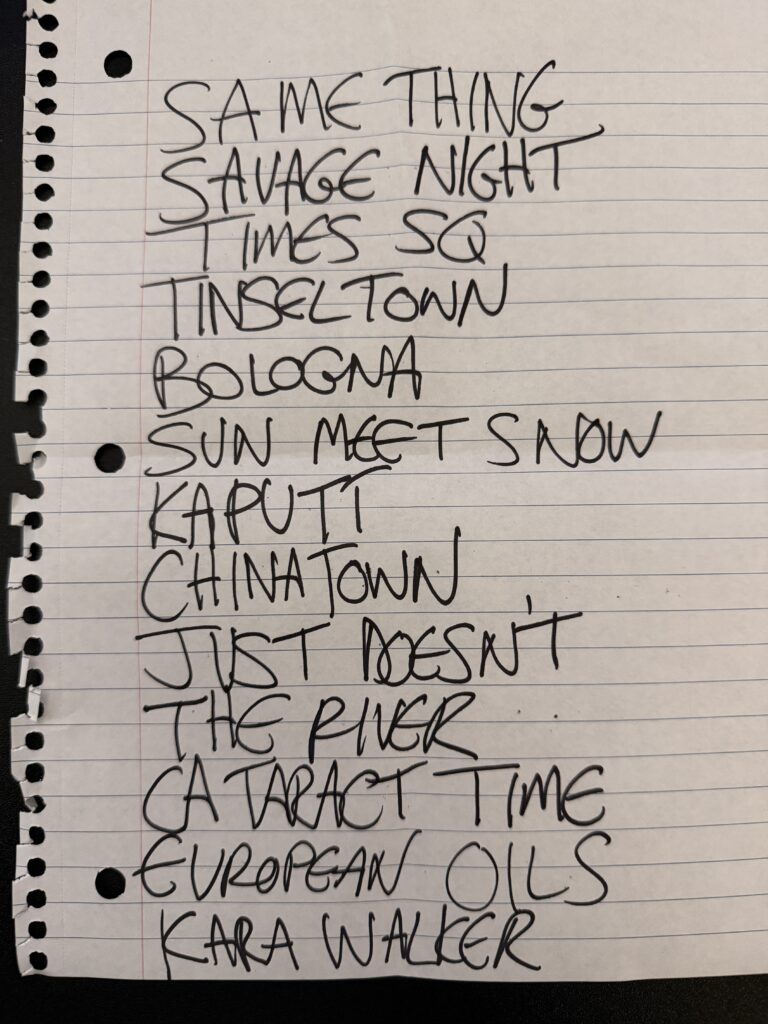 SAME THING
SAVAGE NIGHT
TIMES SQ
TINSELTOWN
BOLOGNA
SUN MEET SNOW
KAPUTT
CHINATOWN
JUST DOESN'T
THE RIVER
CATARACT TIME
EUROPEAN OILS
KARA WALKER